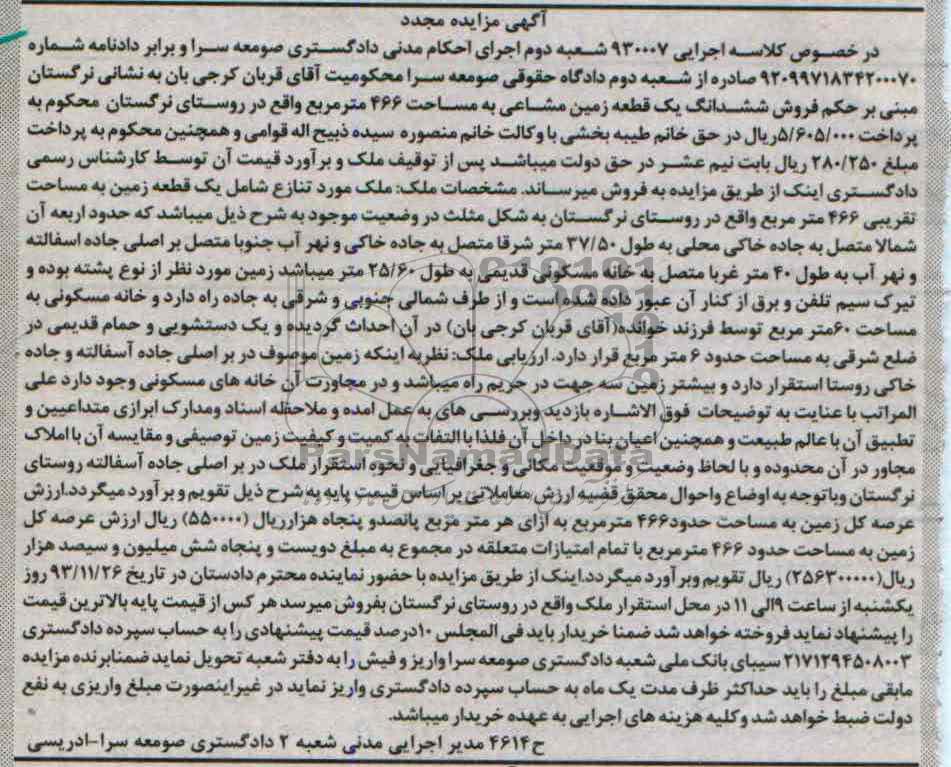 آگهی مزایده مجدد
در خصوص کلاسه اجرایی ۹۳۰۰۰۷ شعبه دوم اجرای احکام مدنی دادگستری صومعه سرا و برابر دادنامه شماره
۹۲۰۹۹۷۱۸۳۴۲۰۰۰۷۰ صادره از شعبه دوم دادگاه حقوقی صومعه سرا محکومیت آقای قربان کرجی بان به نشانی نرگستان
مبنی بر حکم فروش ششدانگ یک قطعه زمین مشاعی به مساحت ۴۶۶ مترمربع واقع در روستای نرگستان محکوم به
پرداخت ۵/۶۰۵/۰۰۰ریال در حق خانم طیبه بخشی با وکالت خانم منصوره سیده ذبیح اله قوامی و همچنین محکوم به پرداخت
مبلغ ۲۸۰/۲۵۰ ریال بابت نیم عشر در حق دولت میباشد پس از توقیف ملک و برآورد قیمت آن توسط کارشناس رسمی
دادگستری اینک از طریق مزایده به فروش میرساند. مشخصات ملک: ملک مورد تنازع شامل یک قطعه زمین به مساحت
تقریبی ۴۶۶ متر مربع واقع در روستای نرگستان به شکل مثلث در وضعیت موجود به شرح ذیل میباشد که حدود اربعه آن
شمالا متصل به جاده خاکی محلی به طول ۳۷/۵۰ متر شرقا متصل به جاده خاکی و نهر آب جنوبا متصل بر اصلی جاده اسفالته
و نهر آب به طول ۴۰ متر غربا متصل به خانه مسکونی قدیمی به طول ۲۵/۶۰ متر میباشد زمین مورد نظر از نوع پشته بوده و
تیرک سیم تلفن و برق از کنار آن عبور داده شده است و از طرف شمالی جنوبی و شرقی به جاده راه دارد و خانه مسکونی به
مساحت ۶۰متر مربع توسط فرزند خوانده(آقای قربان کرجی بان) در آن احداث گردیده و یک دستشویی و حمام قدیمی در
ضلع شرقی به مساحت حدود ۶ متر مربع قرار دارد. ارزیابی ملک: نظریه اینکه زمین موصوف در بر اصلی جاده آسفالته و جاده
خاکی روستا استقرار دارد و بیشتر زمین سه جهت در حریم راه میباشد و در مجاورت آن خانه های مسکونی وجود دارد علی
المراتب با عنایت به توضیحات فوق الاشاره بازدید وبررسی های به عمل امده و ملاحظه اسناد ومدارک ابرازی متداعیین و
تطبیق آن با عالم طبیعت و همچنین اعیان بنا در داخل آن فلذا با التفات به کمیت و کیفیت زمین توصیفی و مقایسه آن با املاک
مجاور در آن محدوده و با لحاظ وضعیت و موقعیت مکانی و جغرافیایی و نحوه استقرار ملک در بر اصلی جاده آسفالته روستای
نرگستان وباتوجه به اوضاع واحوال محقق قضیه ارزش معاملاتی بر اساس قیمت پایه به شرح ذیل تقویم و برآورد میگردد.ارزش
عرصه کل زمین به مساحت حدود۴۶۶ مترمربع به ازای هر متر مربع پانصدو پنجاه هزارریال (۵۵۰۰۰۰) ریال ارزش عرصه کل
زمین به مساحت حدود ۴۶۶ مترمربع با تمام امتیازات متعلقه در مجموع به مبلغ دویست و پنجاه شش میلیون و سیصد هزار
ریال(۲۵۶۳۰۰۰۰۰) ریال تقویم وبرآورد میگردد.اینک از طریق مزایده با حضور نماینده محترم دادستان در تاریخ ۹۳/۱۱/۲۶ روز
یکشنبه از ساعت ۹الی ۱۱ در محل استقرار ملک واقع در روستای نرگستان بفروش میرسد هر کس از قیمت پایه بالاترین قیمت
را پیشنهاد نماید فروخته خواهد شد ضمنا خریدار باید فی المجلس ۱۰درصد قیمت پیشنهادی را به حساب سپرده دادگستری
۲۱۷۱۲۹۴۵۰۸۰۰۳ سیبای بانک ملی شعبه دادگستری صومعه سرا واریز و فیش را به دفتر شعبه تحویل نماید ضمنابرنده مزایده
مابقی مبلغ را باید حداکثر ظرف مدت یک ماه به حساب سپرده دادگستری واریز نماید در غیراینصورت مبلغ واریزی به نفع
دولت ضبط خواهد شد وکلیه هزینه های اجرایی به عهده خریدار میباشد.
ح۴۶۱۴ مدیر اجرایی مدنی شعبه ۲ دادگستری صومعه سرا-ادریسی
ParsNamadData